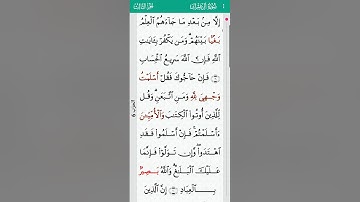 سُورَةُ آلِ عِمۡرَانَ
الجُزۡءُ الثَّالِثُ
إِلَّا مِنۢ بَعۡدِ مَا جَآءَهُمُ ٱلۡعِلۡمُ
بَغۡيَۢا بَيۡنَهُمۡۗ وَمَن يَكۡفُرۡ بِـَٔايَٰتِ
ٱللَّهِ فَإِنَّ ٱللَّهَ سَرِيعُ ٱلۡحِسَابِ
فَإِنۡ حَآجُّوكَ فَقُلۡ أَسۡلَمۡتُ
وَجۡهِيَ لِلَّهِ وَمَنِ ٱتَّبَعَنِۗ وَقُل
لِّلَّذِينَ أُوتُواْ ٱلۡكِتَٰبَ وَٱلۡأُمِّيِّـۧنَ
ءَأَسۡلَمۡتُمۡۚ فَإِنۡ أَسۡلَمُواْ فَقَدِ
ٱهۡتَدَواْۖ وَّإِن تَوَلَّوۡاْ فَإِنَّمَا
عَلَيۡكَ ٱلۡبَلَٰغُۗ وَٱللَّهُ بَصِيرُۢ
بِٱلۡعِبَادِ إِنَّ ٱلَّذِينَ